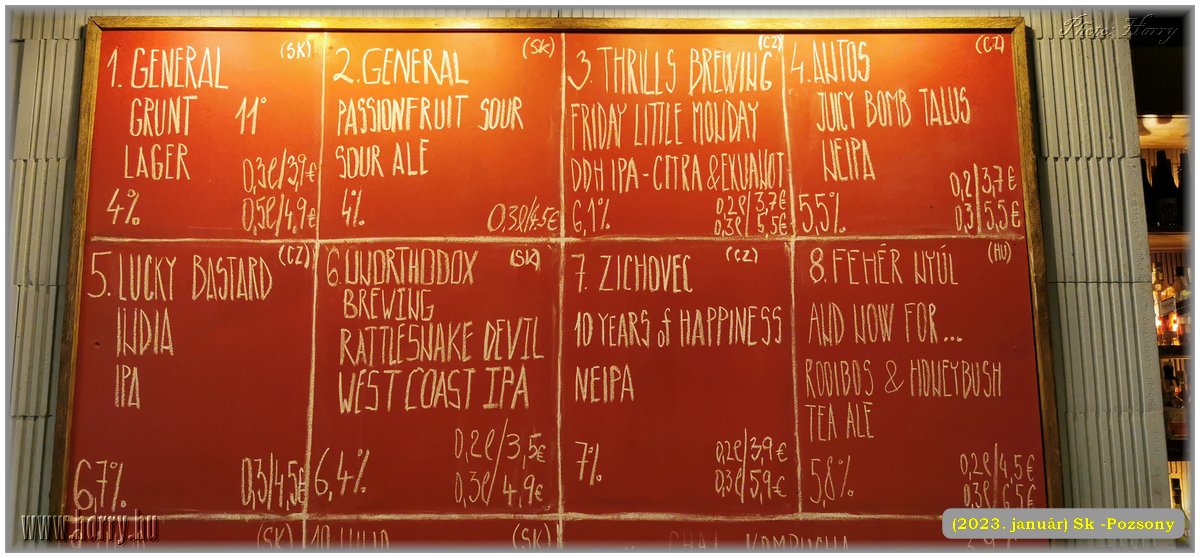 Photo: Horry
1. GENERAL (SK)
GRUNT 11°
LAGER
0,3l/3,9€
4% 0,5l/4,9€
2. GENERAL (SK)
PASSIONFRUIT SOUR
SOUR ALE
4% 0,3l/4,5€
3. THRILLS BREWING (CZ)
FRIDAY LITTLE MONDAY
DDH IPA - CITRA & EKUANOT
6,1% 0,2l/3,7€
0,3l/5,5€
4. ANTOS (CZ)
JUICY BOMB TALUS
NEIPA
0,2/3,7€
5,5% 0,3/5,5€
5. LUCKY BASTARD (CZ)
INDIA
IPA
6,7% 0,3/4,5€
6. UNORTHODOX (SK)
BREWING
RATTLESNAKE DEVIL
WEST COAST IPA
0,2l/3,5€
6,4% 0,3l/4,9€
7. ZICHOVEC (CZ)
10 YEARS of HAPPINESS
NEIPA
0,2l/3,9€
7% 0,3l/5,9€
8. FEHÉR NYÚL (HU)
AND NOW FOR...
ROOIBOS & HONEYBUSH
TEA ALE
0,2l/4,5€
5,8% 0,3l/6,5€
(SK)
10 (SK)
KOMBUCHA
www.horry.hu
(2023. január) Sk -Pozsony